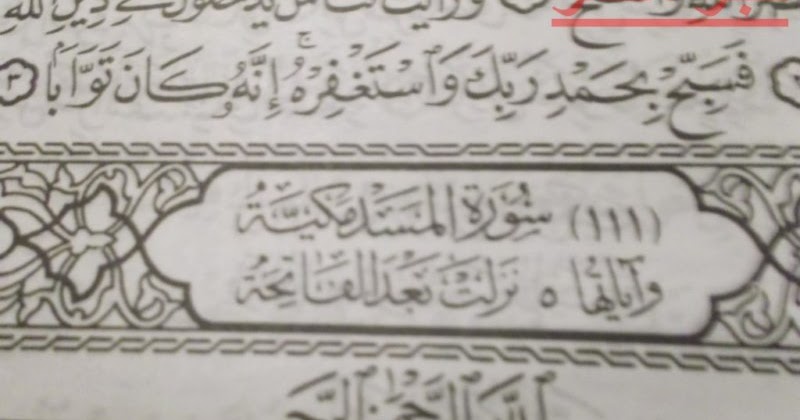 يدخلون في دين الله
فَسَبِّحْ بِحَمْدِ رَبِّكَ وَٱسْتَغْفِرْهُ ۚ إِنَّهُۥ كَانَ تَوَّابَۢا ٣
(١١١) سُورَةُ المَسَدِ مَكِّيَّةٌ
وَآيَاتُهَا ٥ نَزَلَتْ بَعْدَ الفَاتِحَةِ